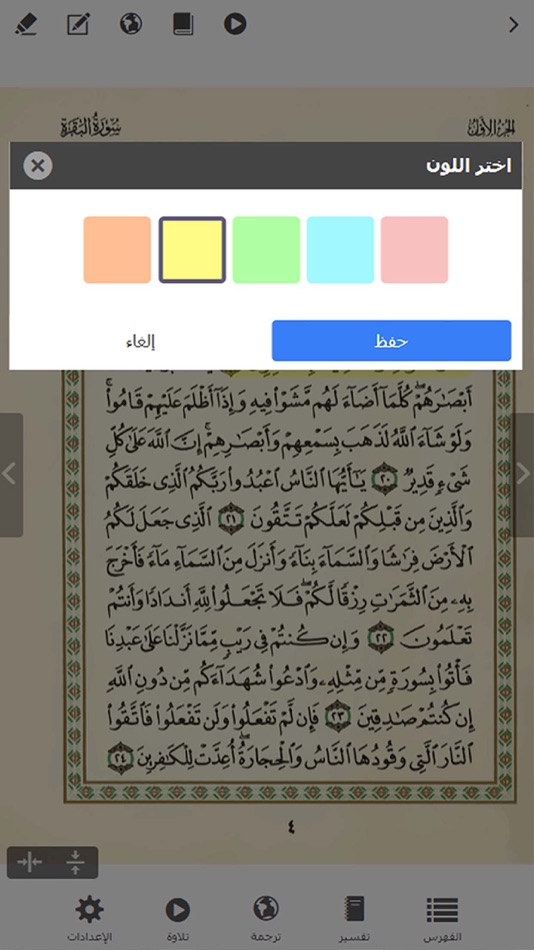 الجزء الأول
سورة البقرة
اختر اللون
حفظ
إلغاء
أَبْصَٰرَهُمْ ۖ كُلَّمَآ أَضَآءَ لَهُم مَّشَوْا۟ فِيهِ وَإِذَآ أَظْلَمَ عَلَيْهِمْ قَامُوا۟ ۚ
وَلَوْ شَآءَ ٱللَّهُ لَذَهَبَ بِسَمْعِهِمْ وَأَبْصَٰرِهِمْ ۚ إِنَّ ٱللَّهَ عَلَىٰ كُلِّ
شَىْءٍ قَدِيرٌ ٢٠ يَٰٓأَيُّهَا ٱلنَّاسُ ٱعْبُدُوا۟ رَبَّكُمُ ٱلَّذِى خَلَقَكُمْ
وَٱلَّذِينَ مِن قَبْلِكُمْ لَعَلَّكُمْ تَتَّقُونَ ٢١ ٱلَّذِى جَعَلَ لَكُمُ
ٱلْأَرْضَ فِرَٰشًا وَٱلسَّمَآءَ بِنَآءً وَأَنزَلَ مِنَ ٱلسَّمَآءِ مَآءً فَأَخْرَجَ
بِهِۦ مِنَ ٱلثَّمَرَٰتِ رِزْقًا لَّكُمْ ۖ فَلَا تَجْعَلُوا۟ لِلَّهِ أَندَادًا وَأَنتُمْ
تَعْلَمُونَ ٢٢ وَإِن كُنتُمْ فِى رَيْبٍ مِّمَّا نَزَّلْنَا عَلَىٰ عَبْدِنَا
فَأْتُوا۟ بِسُورَةٍ مِّن مِّثْلِهِۦ وَٱدْعُوا۟ شُهَدَآءَكُم مِّن دُونِ ٱللَّهِ
إِن كُنتُمْ صَٰدِقِينَ ٢٣ فَإِن لَّمْ تَفْعَلُوا۟ وَلَن تَفْعَلُوا۟ فَٱتَّقُوا۟
ٱلنَّارَ ٱلَّتِى وَقُودُهَا ٱلنَّاسُ وَٱلْحِجَارَةُ ۖ أُعِدَّتْ لِلْكَٰفِرِينَ ٢٤
٤
الفهرس
تفسير
ترجمة
تلاوة
الإعدادات